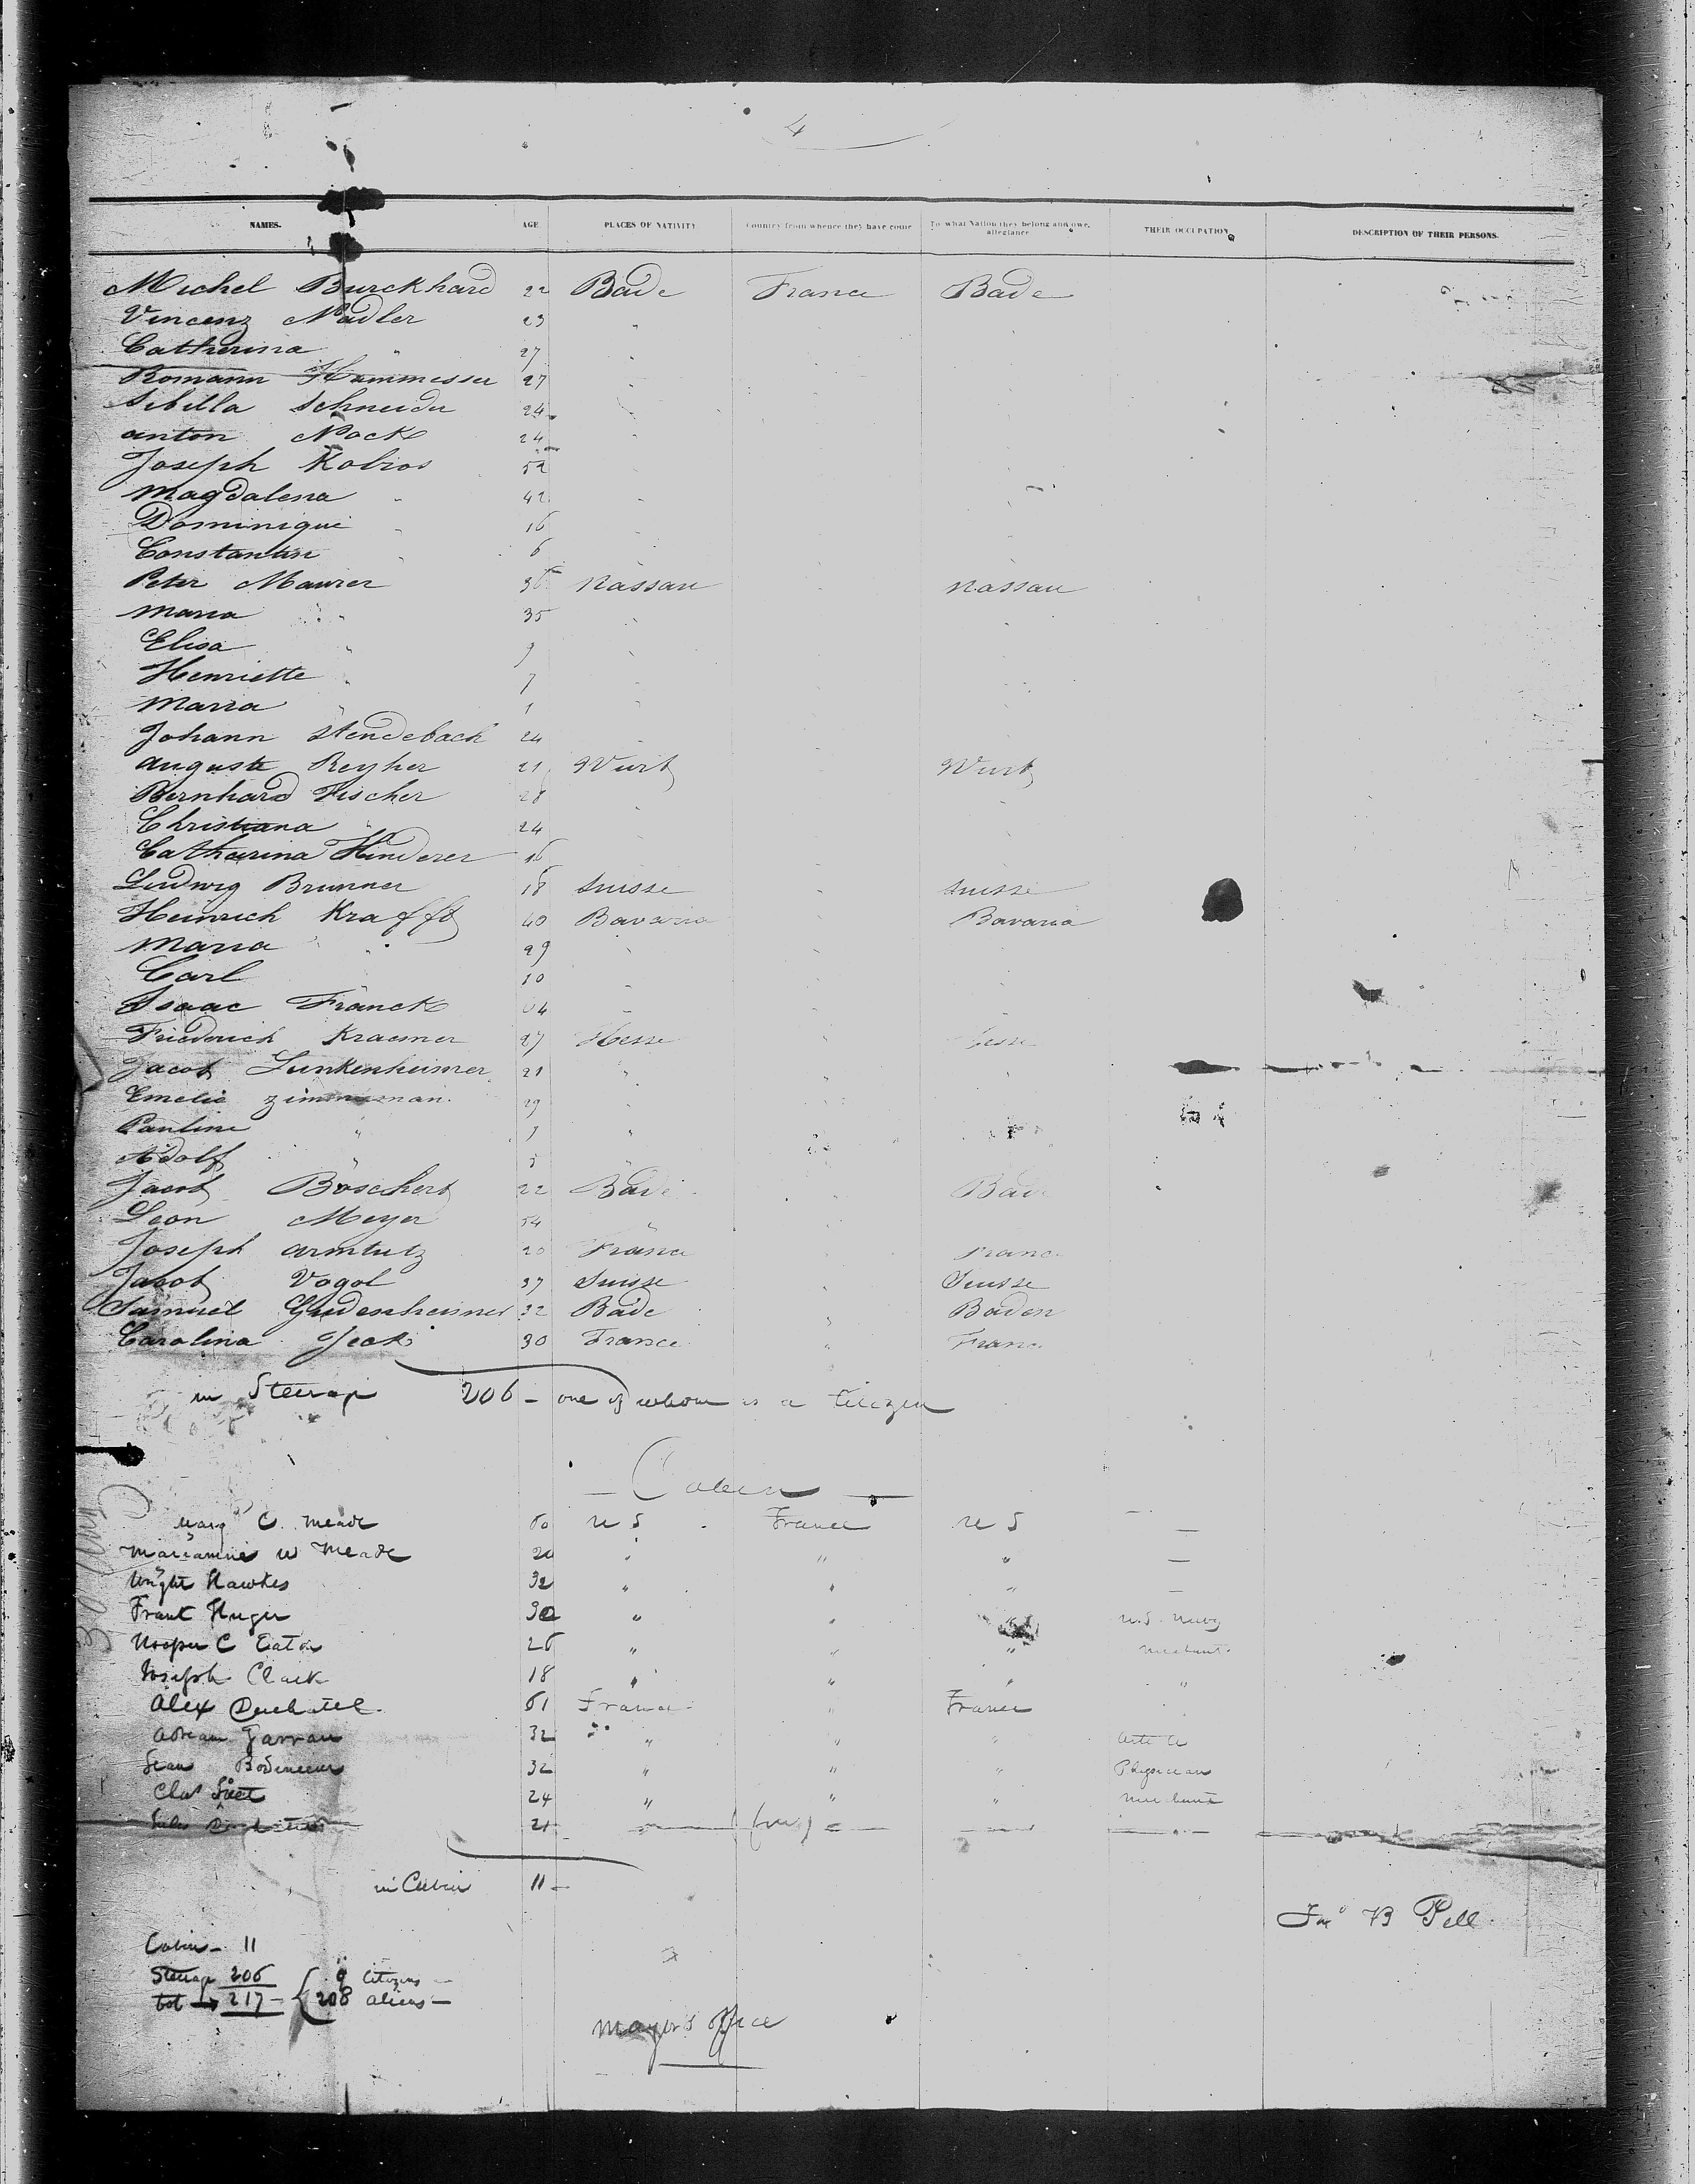 4
NAMES. AGE PLACES OF NATIVITY Country from whence they have come To what Nation they belong and owe allegiance THEIR OCCUPATION DESCRIPTION OF THEIR PERSONS.
Michel Burckhard 22 Bade France Bade
Vincenz Nadler 23 "
Catherina " 27 "
Romann Hummesser 27 "
Sibilla Schneider 24 "
Anton Nock 24 "
Joseph Kobros 52 "
Magdalena " 42 "
Dominique " 16 "
Constantin " 6 "
Peter Maurer 36 Nassau Nassau
Maria " 35 "
Elisa " 9 "
Henriette " 7 "
Maria " 1 "
Johann Stendebach 24 "
Auguste Reyher 21 Wurt Wurt
Bernhard Fischer 28 "
Christiana " 24 "
Catharina Hinderer 16 "
Ludwig Brunner 18 Suisse " Suisse
Heinrich Krafft 40 Bavaria Bavaria
Maria " 29 "
Carl " 10 "
Isaac Franck 64 "
Friedrich Kraemer 27 Hesse " Hesse
Jacob Lunkenheimer 21 " " "
Emelie Zimmerman 29 "
Pauline " 7 "
Adolf " 5 "
Jacob Boschert 22 Bade Bade
Leon Meyer 54 "
Joseph Armtutz 20 France France
Jacob Vogol 37 Suisse " Suisse
Samuel Gudenheimer 32 Bade " Baden
Carolina Jeck 30 France " France
in Steerage 206 - one of whom is a Citizen
— Cabin —
Mary C. Meade 60 U S France U S —
Mariamne W Meade 20 " " " —
Wright Hawkes 32 " " " —
Frank Huger 30 " " " U.S. Navy
Hooper C Eaton 26 " " " Merchant
Joseph Clark 18 " " " "
Alex Duchatel 61 France " France
Adrean Garrau 32 " " "
Jean Bodineeur 32 " " " Physician
Chas 24 " " " Merchant
Jules 21
in Cabin 11 —
Jno B Pell
Cabin - 11
Steerage 206 9 Citizens —
tot → 217 — { 208 aliens —
Mayor's Office